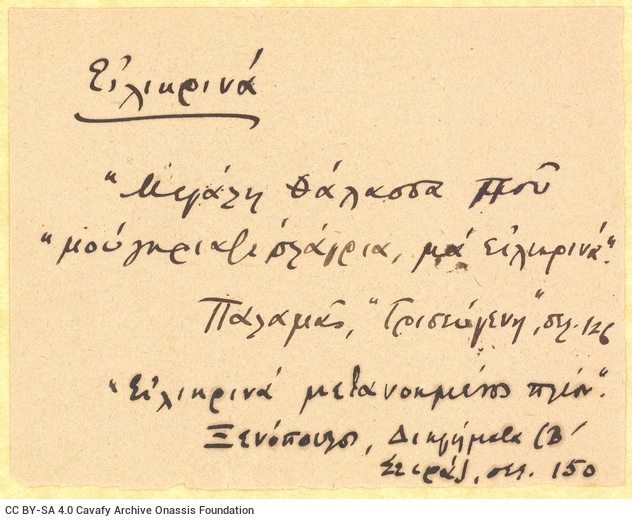 Εἰλικρινά
"Μεγάλη θάλασσα ποῦ
"μούγκριαζε ὁλάγρια, μά εἰλικρινά".
Παλαμᾶς, "Τρισεύγενη", σελ. 126
"Εἰλικρινά μετανοημένος πλέον".
Ξενόπουλος, Διηγήματα (Β΄
Σειρά), σελ. 150
CC BY-SA 4.0 Cavafy Archive Onassis Foundation